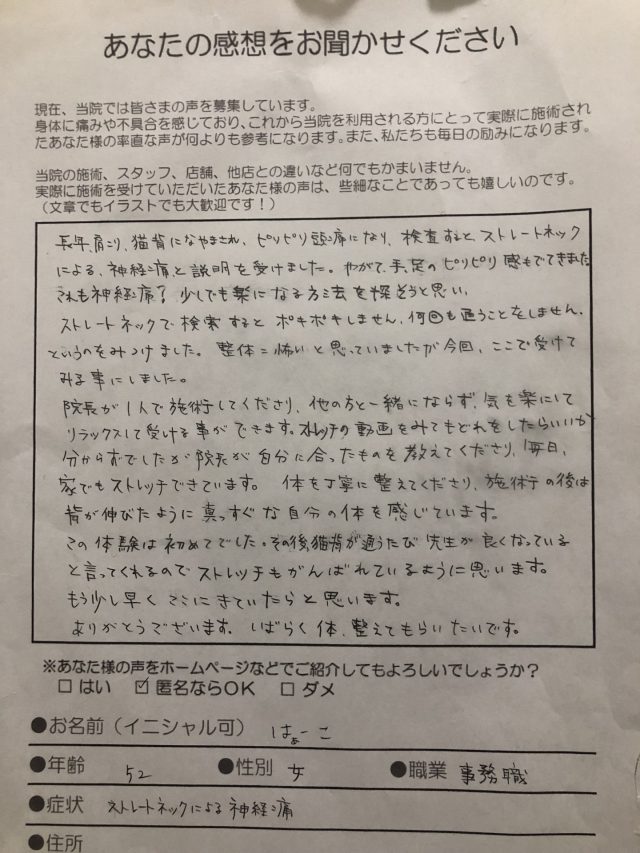 あなたの感想をお聞かせください
現在、当院では皆さまの声を募集しています。
身体に痛みや不具合を感じており、これから当院を利用される方にとって実際に施術され
たあなた様の率直な声が何よりも参考になります。また、私たちも毎日の励みになります。
当院の施術、スタッフ、店舗、他店との違いなど何でもかまいません。
実際に施術を受けていただいたあなた様の声は、些細なことであっても嬉しいのです。
（文章でもイラストでも大歓迎です！）
長年、肩こり、猫背になやまされ、ピリピリ頭痛になり、検査するとストレートネック
による、神経痛と説明を受けました。やがて、手、足のピリピリ感もでてきました
これも神経痛？少しでも楽になる方法を探そうと思い、
ストレートネックで検索するとポキポキしません、何回も通うことをしません、
というのをみつけました。整体＝怖いと思っていましたが今回、ここで受けて
みる事にしました。
院長が1人で施術してくださり、他の方と一緒にならず、気を楽にして
リラックスして受ける事ができます。ストレッチの動画をみてもどれをしたらいいか
分からずでしたが院長が自分に合ったものを教えてくださり、毎日、
家でもストレッチできています。体を丁寧に整えてくださり、施術の後は
背が伸びたように真っすぐな自分の体を感じています。
この体験は初めてでした。その後、猫背が通うたび先生が良くなっている
と言ってくれるのでストレッチもがんばれているように思います。
もう少し早くここにきていたらと思います。
ありがとうございます。しばらく体、整えてもらいたいです。
※あなた様の声をホームページなどでご紹介してもよろしいでしょうか？
□ はい ☑ 匿名ならOK □ ダメ
●お名前（イニシャル可） はぁーこ
●年齢 52 ●性別 女 ●職業 事務職
●症状 ストレートネックによる神経痛
●住所